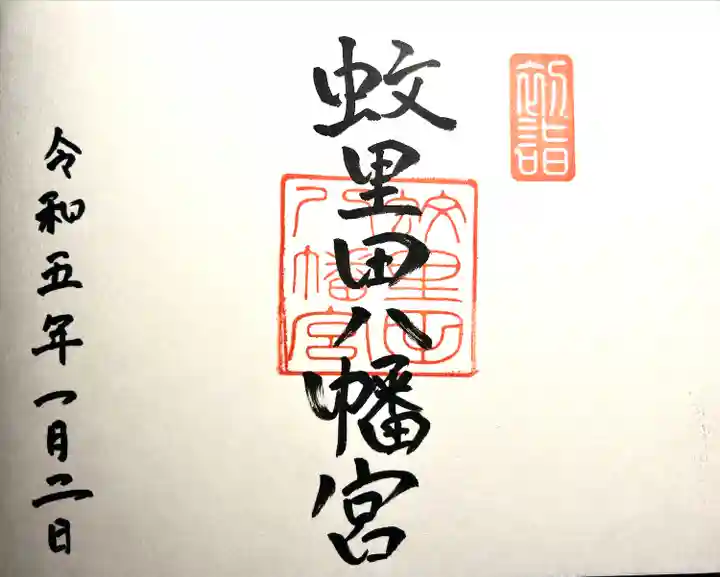 初詣
蚊里田八幡宮
蚊里田
八幡宮
令和五年一月二日